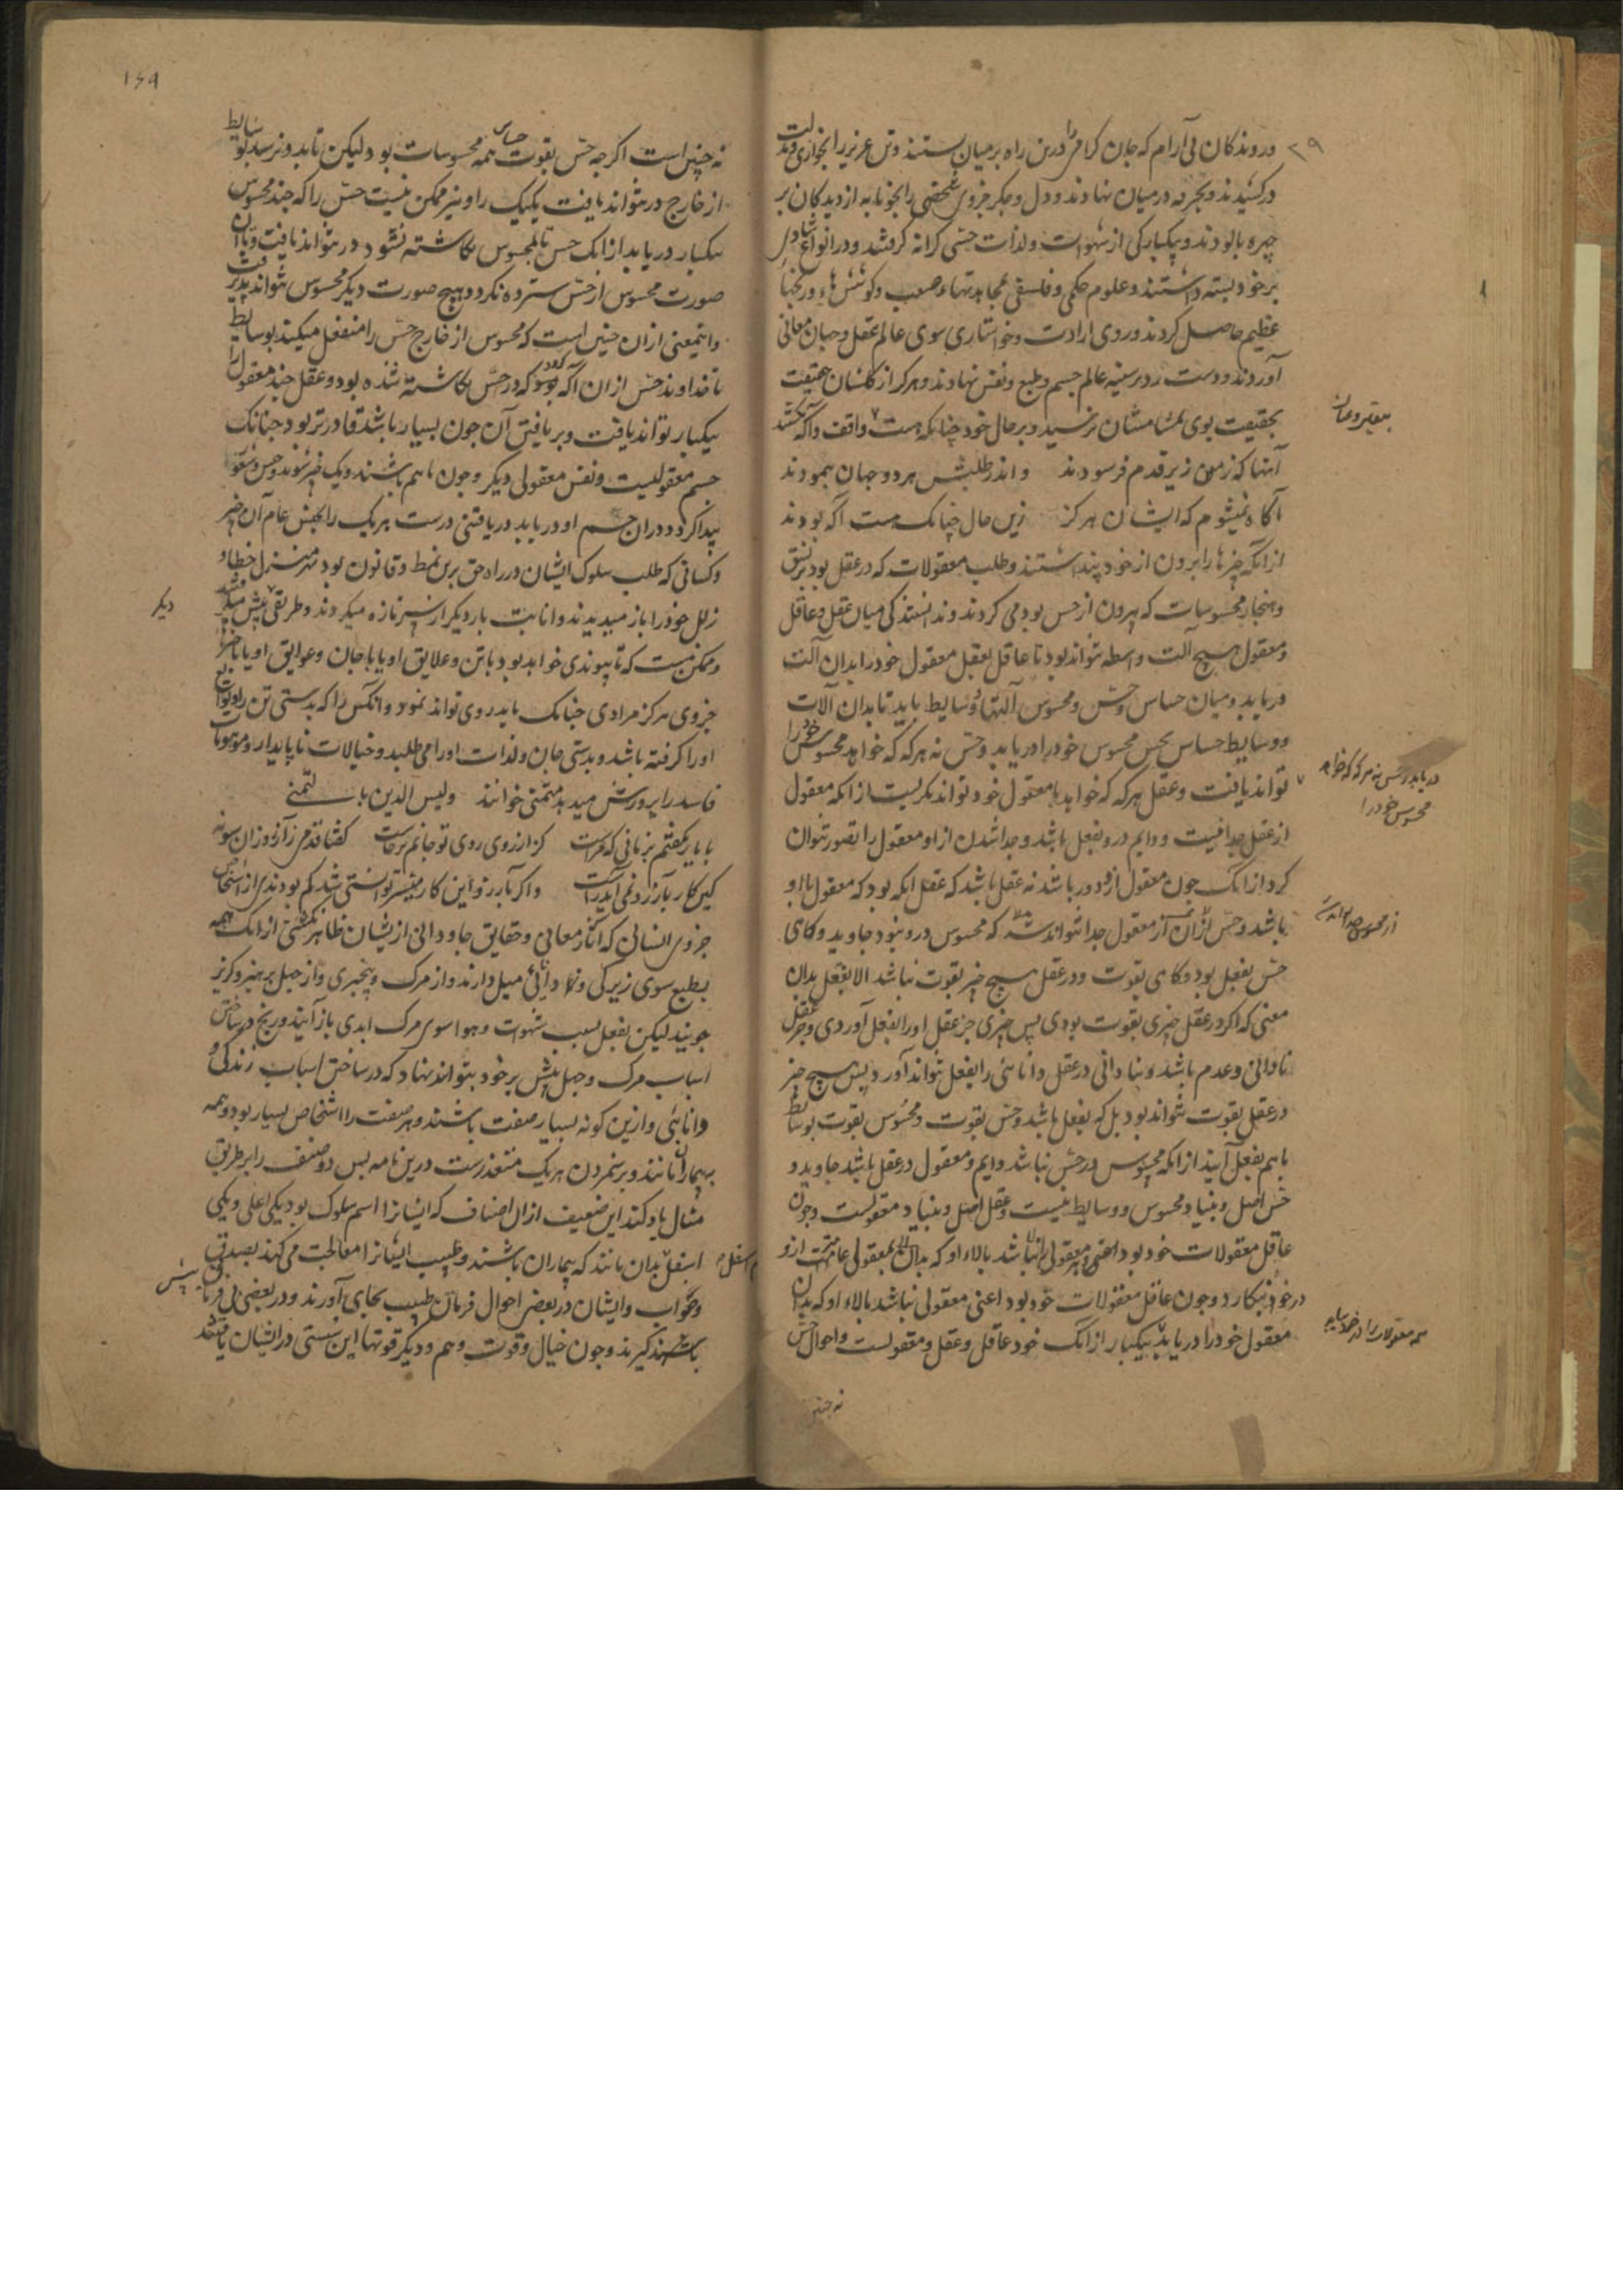 و روندکان بی آرام که جان کرامی را درین راه بر میان بستند و تن عزیز را بخواری و مذلت
درکشیدند و بجرد در میان نهادند و دل و جکر جزوی شخصی را بخونابه از دیدکان بر
چهره پالودند و بیکبارکی از شهوات و لذات حسی کرانه کرفتند و در انواع شادی
بر خود بسته داشتند و علوم حکمی و فلسفی بمجاهدتهاء صعب و کوششهاء و رنجهاء
عظیم حاصل کردند و روی ارادت و خواستاری سوی عالم عقل و جهان معانی
آوردند و دست رد بر سینه عالم جسم و طبع و نفس نهادند و هرکز از کلستان حقیقت
بحقیقت بوی بمشامشان نرسید و بر حال خود چنانکه هست واقف و آکه نکشتند
آنها که زمین زیر قدم فرسودند و اندر طلبش هر دو جهان پیمودند
آکاه نمیشوم که ایشان هرکز زین حال چنانک هست آکه بودند
از آنکه چیزها را برون از خود پنداشتند و طلب معقولات که در عقل بود بر نسق
و هنجار محسوسات که بیرون از حس بود می کردند و ندانستند کی میان عقل و عاقل
و معقول هیچ آلت و واسطه نتواند بود تا عاقل بعقل معقول خود را بدان آلت
دریابد و میان حساس و حس و محسوس آلتها و وسایط باید تا بدان آلات
و وسایط حساس بحس محسوس خود را دریابد و حس نه هرکه که خواهد محسوس خود را
تواند یافت و عقل هرکه که خواهد با معقول خود تواند نکریست از آنکه معقول
از عقل جدا نیست و دایم درو بفعل باشد و جدا شدن از او معقول را تصور نتوان
کرد از آنک چون معقول ازو دور باشد نه عقل باشد که عقل آنکه بود که معقول با او
باشد و حس از آن از معقول جدا تواند شد که محسوس درو نبود جاوید و کاهی
حس بفعل بود و کاهی بقوت و در عقل هیچ چیز بقوت نباشد الا بفعل بدان
معنی که اکر در عقل چیزی بقوت بودی پس چیزی جز عقل او را بفعل آوردی و جز عقل
نادانی و عدم باشد و بنادانی در عقل دانائی را بفعل نتواند آورد پس هیچ چیز
در عقل بقوت نتواند بود بل که بفعل باشد و حس بقوت و محسوس بقوت بوسایط
باهم بفعل آیند از آنکه محسوس در حس نباشد دایم و معقول در عقل باشد جاوید و
حس اصل و بنیاد محسوس و وسایط نیست و عقل اصل و بنیاد معقولست و چون
عاقل معقولات خود بود
در خود بنکارد و چون عاقل معقولات خود بود اعنی معقولی نباشد بالاء او که بدان
معقول خود را دریابد بیکبار از آنک خود عاقل و عقل و معقولست و احوال حس
نه چنین
۲۹
دریابد و حس نه هرکه که خواهد
محسوس خود را
از محسوس جدا تواند
همه معقولات را در خود بیابد
۱۶۹
نه چنین است اکرچه حس بقوت حساس همه محسوسات بود ولیکن تا بدو نرسد بوسایط
از خارج در نتواند یافت یکیک را و نیز ممکن نیست حس را که چند محسوس
بیکبار دریابد از آنک حس تا بمحسوس نکاشته نشود در نتواند یافت و تا آن
صورت محسوس از حس سترده نکردد هیچ صورت دیکر محسوس نتواند پذیرفت
و اینمعنی از آن چنین است که محسوس از خارج حس را منفعل میکند بوسایط
تا خداوند حس از آن آکه بود که در حس نکاشته شده بود و عقل چند معقول را
بیکبار تواند یافت و بر یافتن آن چون بسیار باشد قادرتر بود چنانک
جسم معقولیست و نفس معقولی دیکر و چون باهم باشند و یک چیز شوند
پیدا کردد در آن جسم او دریابد دریافتنی درست هر یک را بجنس عام آن چیز
و کسانی که طلب سلوک ایشان در راه حق برین نمط و قانون بود هر منزل خطا و
زلل خود را باز میدیدند و انابت بار دیکر از سر تازه میکردند و طریقی پیش میکرفتند
و ممکن نیست که تا پیوندی خواهد بود با تن و علایق او یا با جان و عوایق او یا با خیر
جزوی هرکز مرادی چنانک باید روی تواند نمود و آنکس را که بدستی تن
او را کرفته باشد و بدستی جان و لذات او را می طلبد و خیالات ناپایدار و موهومات
فاسد را پرورش میدهد متمنی خوانند ولیس الدین بالتمنی
با یار بکفتم بزبانی که مراست کز آرزوی روی تو جانم برخاست کفتا قدمی زآرزو زان سو نه
کین کار بآرزو نمی آید راست و اکر بآرزو این کار میسر توانستی شد کم بودندی از اشخاص
جزوی انسانی که آثار معانی و حقایق جاودانی از یشان ظاهر نکشتی از آنک همه
بطبع سوی زیرکی و دانائی میل دارند و از مرک و بیخبری و از جهل پرهیز و کریز
جویند لیکن بفعل بسبب شهوات و هوا سوی مرک ابدی باز آیند و رنج در ساختن
اسباب مرک و جهل بیش بر خود بتوانند نهاد که در ساختن اسباب زندکی و
دانائی و ازین کونه بسیار صفت باشند و هر صفت را اشخاص بسیار بود و همه
ببیماران مانند و برشمردن هر یک متعذرست درین نامه پس دو صنف را بر طریق
مثال یاد کند این ضعیف از آن اصناف که ایشانرا اسم سلوک بود یکی اعلی و یکی
اسفل بدان مانند که بیماران باشند و طبیب ایشانرا معالجت می کند بصدق
و صواب و ایشان در بعضی احوال فرمان طبیب بجای آورند و در بعضی بی فرمانی
باشند کیرند و چون خیال و قوت وهم و دیکر قوتها این سستی در ایشان یافتند
دیکر
اسفل
پیش